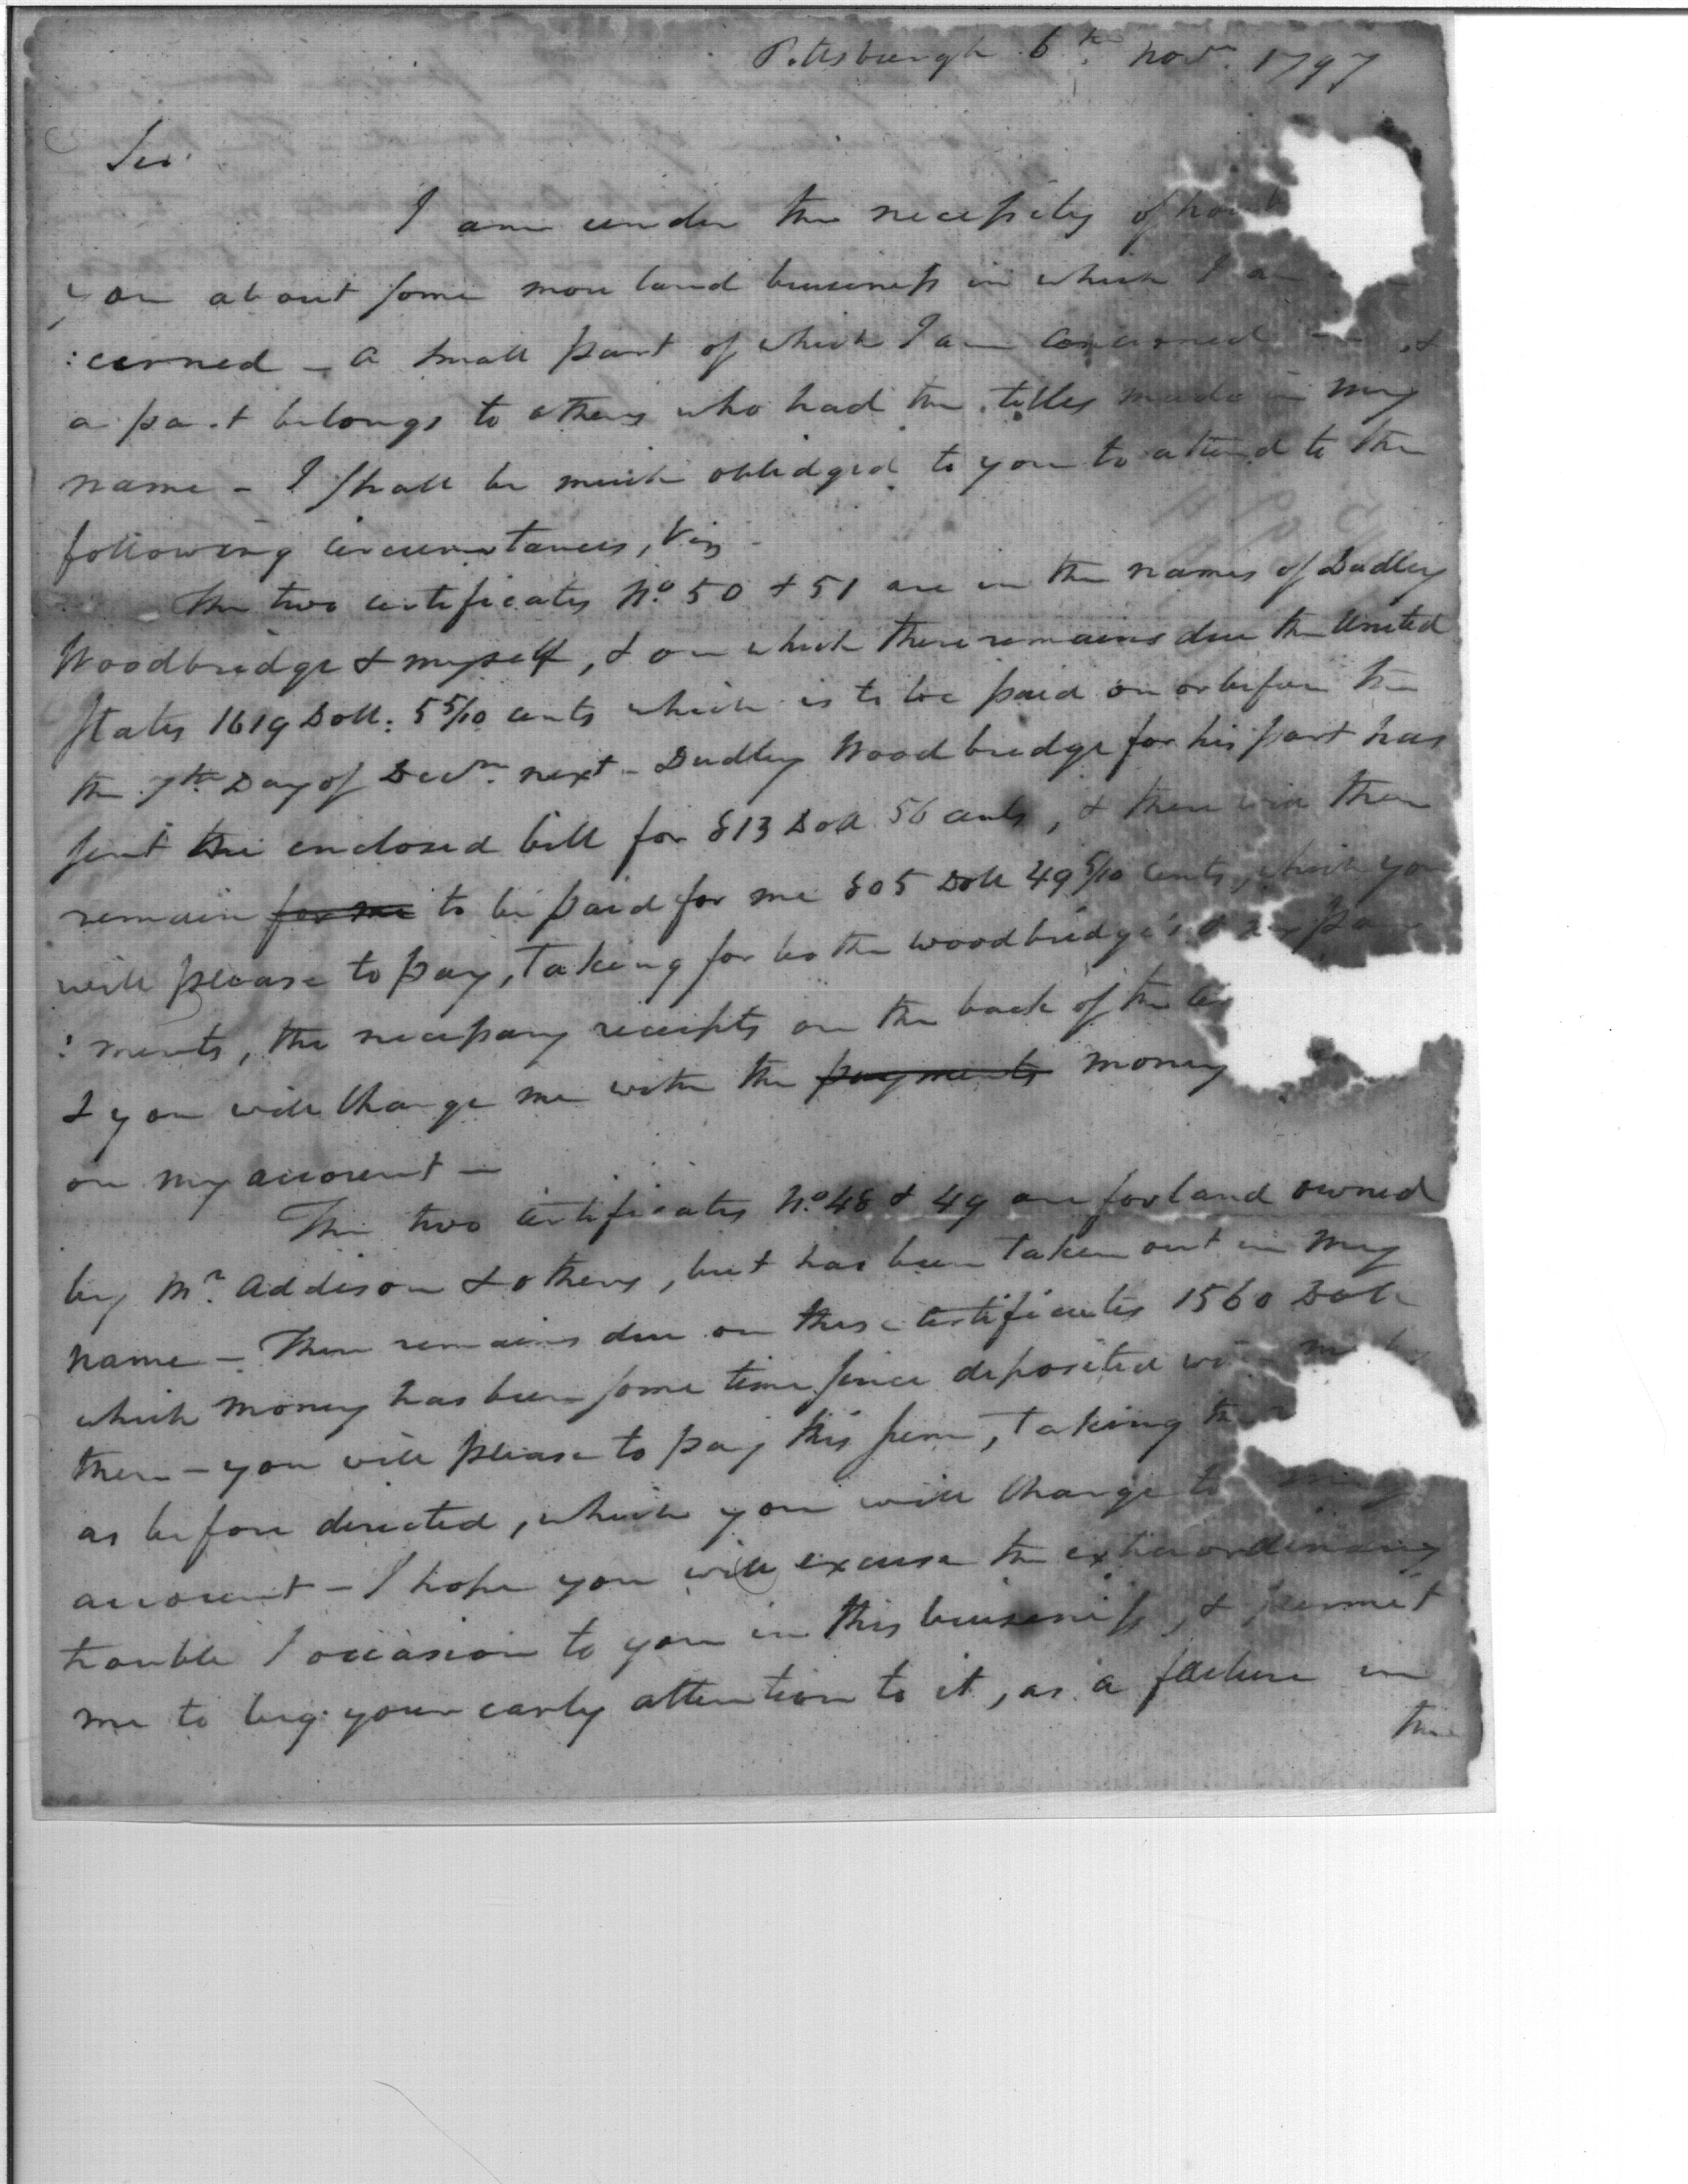 Pittsburgh 6th. Novr. 1797
Sir
I am under the necessity of
you about some more land business in which I am
:cerned – a small part of which I am concerned &
a part belongs to others who had the titles made in my
name – I shall be much oblidged to you to attend to the
following circumstances, Viz –
The two certificates No. 50 & 51 are in the names of Dudley
Woodbridge & myself, & on which there remains due the United
States 1619 Doll: 5 5/10 cents which is to be paid on or before the
the 7th Day of Decr. next – Dudley Woodbridge for his part has
sent the enclosed bill for 813 Doll 56 cents, & there will then
remain for me to be paid for me 805 Doll 49 5/10 cents, which you
will please to pay, Taking for both Woodbridge's & my pay
:ments, the necessary receipts on the back of the
& you will Charge me with the payments money
on my account –
The two certificates No. 48 & 49 are for land owned
by Mr. Addison & others, but has been Taken out in my
name – There remains due on these certificates 1560 Doll
which money has been some time since deposited with me by
them – you will please to pay this sum, Taking the
as before directed, which you will Charge to my
account – I hope you will excuse the extraordinary
trouble I occasion to you in this business, & permit
me to beg your early attention to it, as a failure in
the